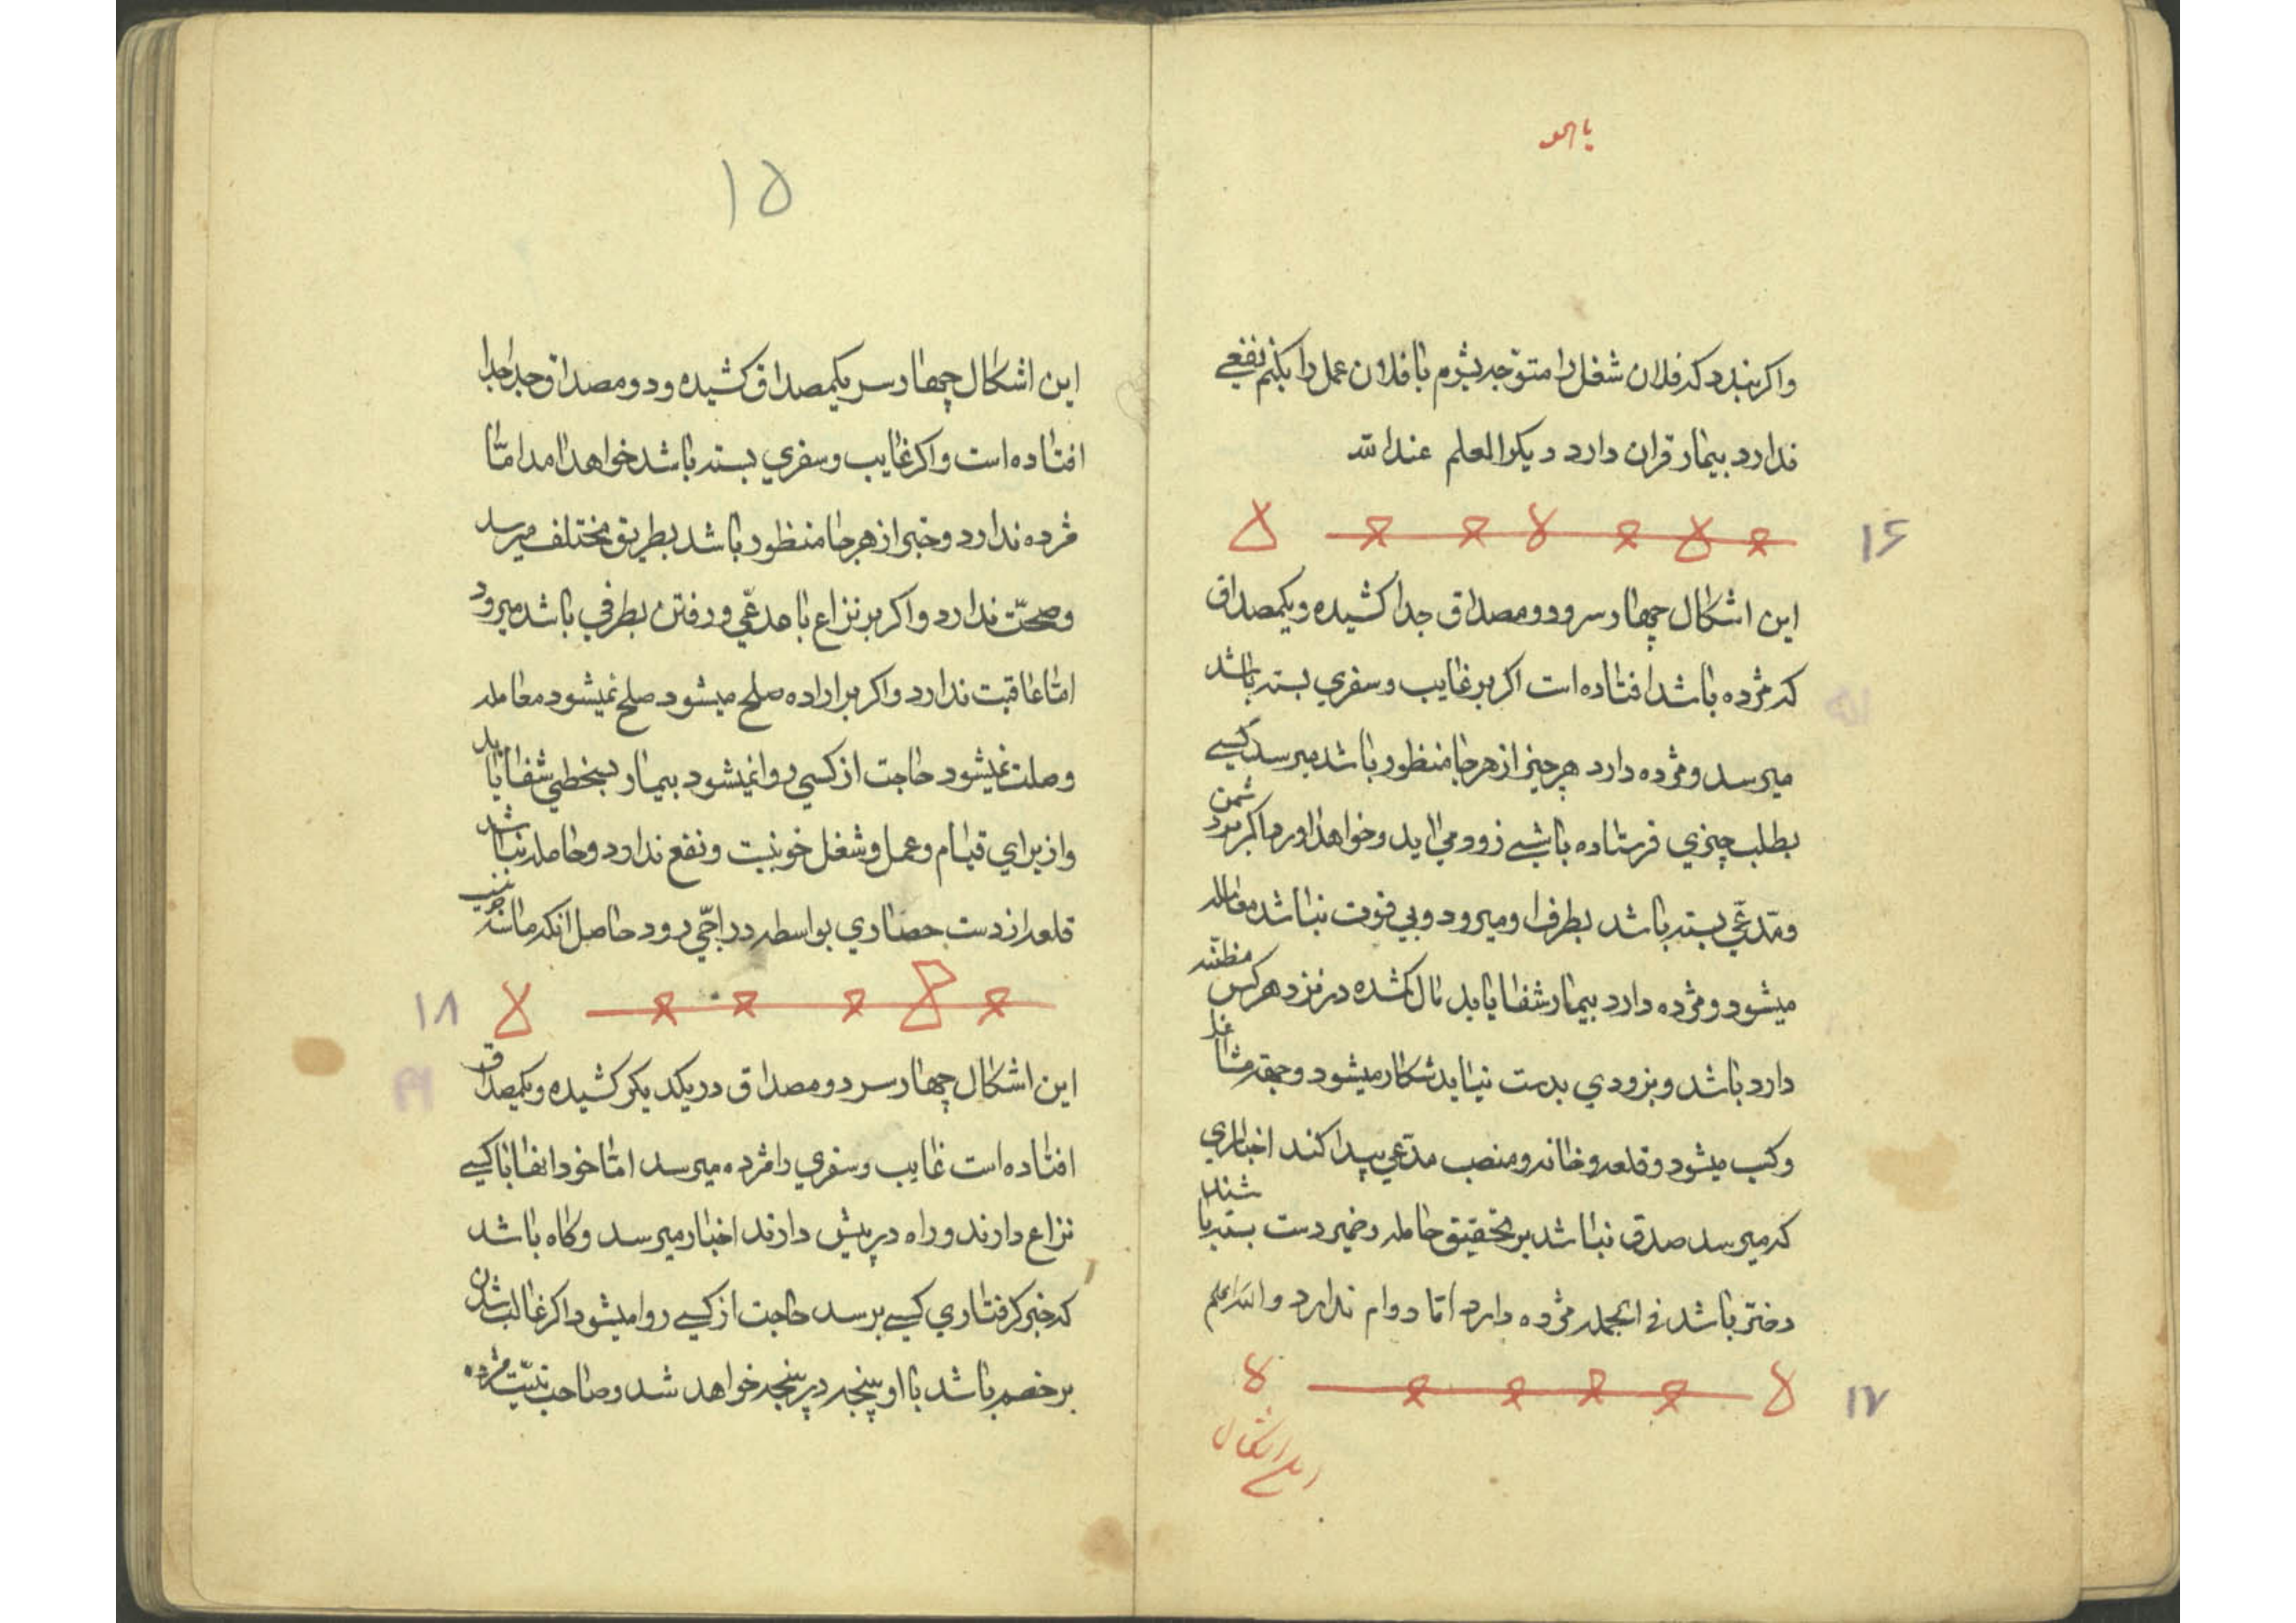 یاهو
واکر ببندد که فلان شغل را متوّجه بشوم یا فلان عمل را بکنم نفعی
ندارد بیمار قران دارد دیکر العلم عندالله
۱۶
این اشکال چهار سر و دو مصداق جدا کشیده و یکمصداق
که مژده باشد افتاده است اکر بر غایب و سفری بسته باشد
میرسد و مژده دارد هر چیز از هر جا منظور باشد میرسد کسی
بطلب چیزی فرستاده باشی زود می اید و خواهد اورد اکر بر دشمن
و مّدعّی بسته باشد بطرف او میرود و بی فوت نباشد معامله
میشود و مژده دارد بیمار شفا یابد مال کمشده در نزد هر کس مظنّه
دارد باشد و بزودی بدست نیاید شکار میشود و جهة
و کسب میشود و قلعه و خانه و منصب مدّعی پیدا کند اخباری
که میرسد صدق نباشد بر تحقیق حامله و ضمیر دست بسته باشند
دختر باشد فی الجمله مژده دارد امّا دوام ندارد والله اعلم
۱۷
این اشکال
۱۵
این اشکال چهار سر یکمصداق کشیده و دو مصداق جدا جدا
افتاده است واکر غایب و سفری بسته باشد خواهد امد امّا
مژده ندارد و خبر از هر جا منظور باشد بطریق مختلف میرسد
و صحّت ندارد واکر بر نزاع با مدعّی و رفتن بطرفی باشد میرود
امّا عاقبت ندارد واکر بر اراده صلح میشود صلح نمیشود معامله
وصلت نمیشود حاجت از کسی روا نمیشود بیمار بسختی شفا یابد
و از برای قیام و عمل و شغل خوب نیست و نفع ندارد و حامله نباشد
قلعه از دست حصاری بواسطه در اجّی رود حاصل انکه
۱۸
این اشکال چهار سر دو مصداق در یکدیکر کشیده و یکمصداق
افتاده است غایب و سفری را مژده میرسد امّا خود انفا با کسی
نزاع دارند و راه در پیش دارند اخبار میرسد و کاه باشد
که خبر کرفتاری کسی برسد حاجت از کسی روا میشود اکر غالب شدن
بر خصم باشد با او پنجه در پنجه خواهد شد و صاحب نیّت مژده